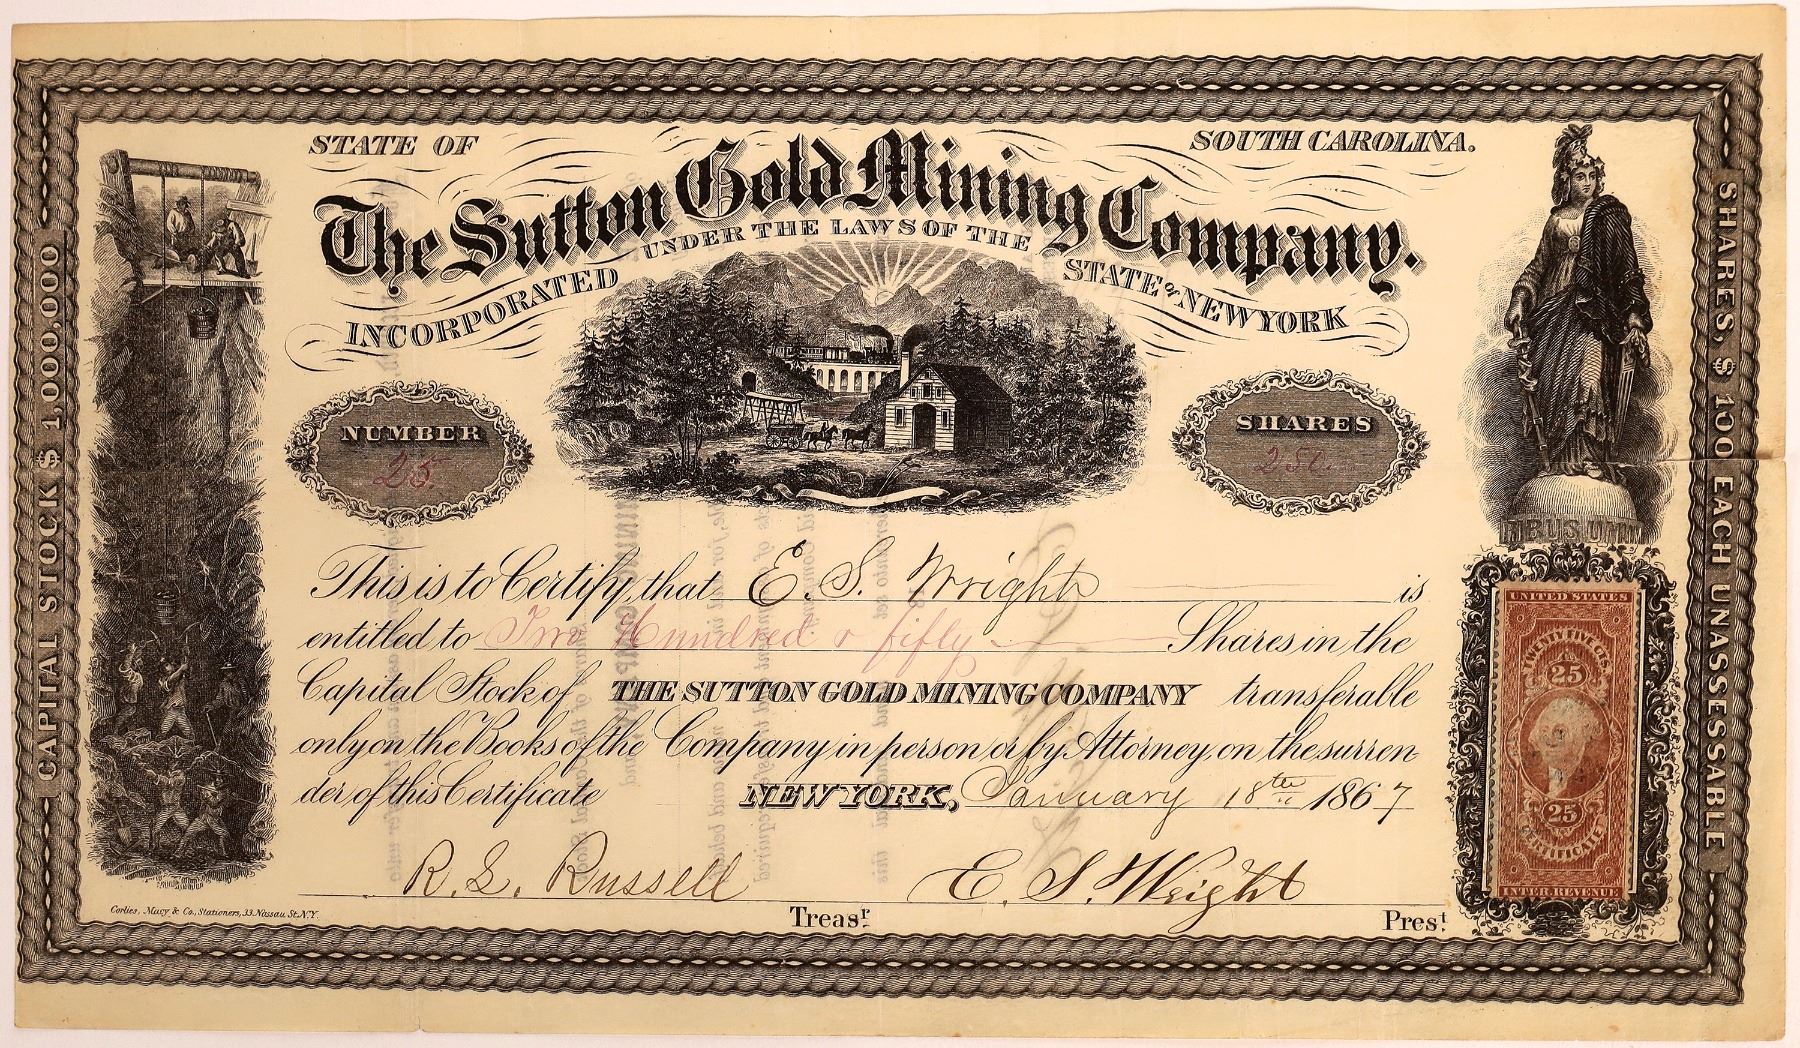 STATE OF SOUTH CAROLINA.
The Sutton Gold Mining Company.
INCORPORATED UNDER THE LAWS OF THE STATE of NEW YORK
NUMBER
25
SHARES
250.
CAPITAL STOCK $ 1,000,000
SHARES, $ 100 EACH UNASSESSABLE
This is to Certify, that E. S. Wright is
entitled to Two Hundred & fifty Shares in the
Capital Stock of THE SUTTON GOLD MINING COMPANY transferable
only on the Books of the Company in person or by Attorney, on the surren
der, of this Certificate NEW YORK, January 18th 1867
R. L. Russell E. S. Wright
Treasr. Prest.
Corlies, Macy & Co., Stationers, 33 Nassau St. N.Y.
UNITED STATES
TWENTY FIVE CTS.
25
25
CERTIFICATE
INTER. REVENUE